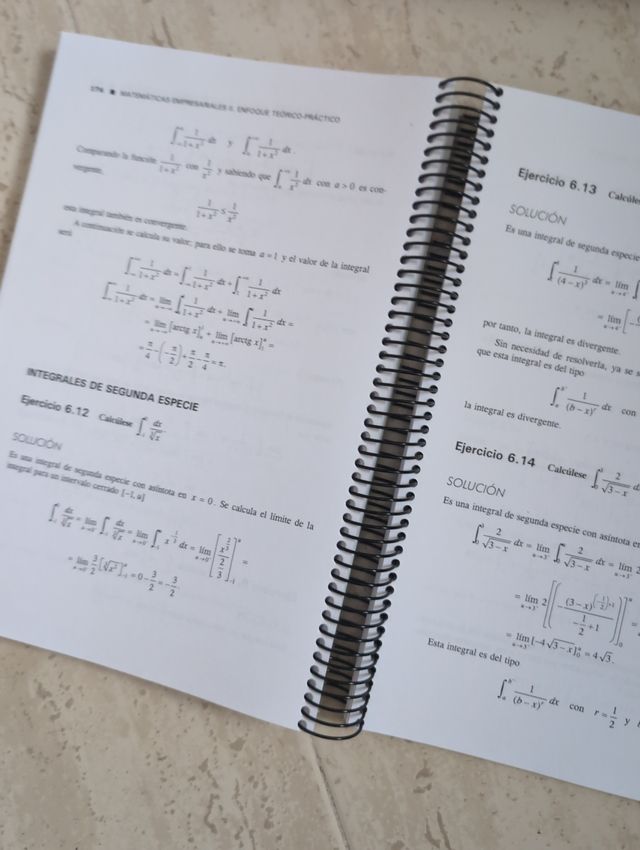 174 ■ MATEMÁTICAS EMPRESARIALES II. ENFOQUE TEÓRICO-PRÁCTICO
∫ 1/(1+x²) dx y ∫ 1/(1+x²) dx.
Comparando la función 1/(1+x²) con 1/x² y sabiendo que ∫ 1/x² dx con a > 0 es con-
vergente,
1/(1+x²) ≤ 1/x²
esta integral también es convergente.
A continuación se calcula su valor; para ello se toma a = 1 y el valor de la integral
será
∫ 1/(1+x²) dx = ∫ 1/(1+x²) dx + ∫ 1/(1+x²) dx
∫ 1/(1+x²) dx = lím ∫ 1/(1+x²) dx + lím ∫ 1/(1+x²) dx =
= lím [arctg x] + lím [arctg x] =
= π/4 - (-π/2) + π/2 - π/4 = π.
INTEGRALES DE SEGUNDA ESPECIE
Ejercicio 6.12 Calcúlese ∫ dx/∛x.
SOLUCIÓN
Es una integral de segunda especie con asíntota en x = 0. Se calcula el límite de la
integral para un intervalo cerrado [-1, a]
∫ dx/∛x = lím ∫ dx/∛x = lím ∫ x^(-1/3) dx = lím [x^(2/3)/(2/3)] =
= lím 3/2 [∛x²] = 0 - 3/2 = -3/2.
Ejercicio 6.13
SOLUCIÓN
Es una integral de segunda especie
∫ 1/(4-x)² dx = lím ∫
= lím
por tanto, la integral es divergente.
Sin necesidad de resolverla, ya se
que esta integral es del tipo
∫ 1/(b-x)^r dx con
la integral es divergente.
Ejercicio 6.14 Calcúlese ∫₀³ 2/√(3-x)
SOLUCIÓN
Es una integral de segunda especie con asíntota
∫₀³ 2/√(3-x) dx = lím ∫₀ 2/√(3-x) dx = lím 2
= lím 2 [-(3-x)^((-1/2)+1)/(-1/2+1)]₀ᵃ =
= lím [-4√(3-x)]₀ᵃ = 4√3.
Esta integral es del tipo
∫ 1/(b-x)^r dx con r = 1/2 y